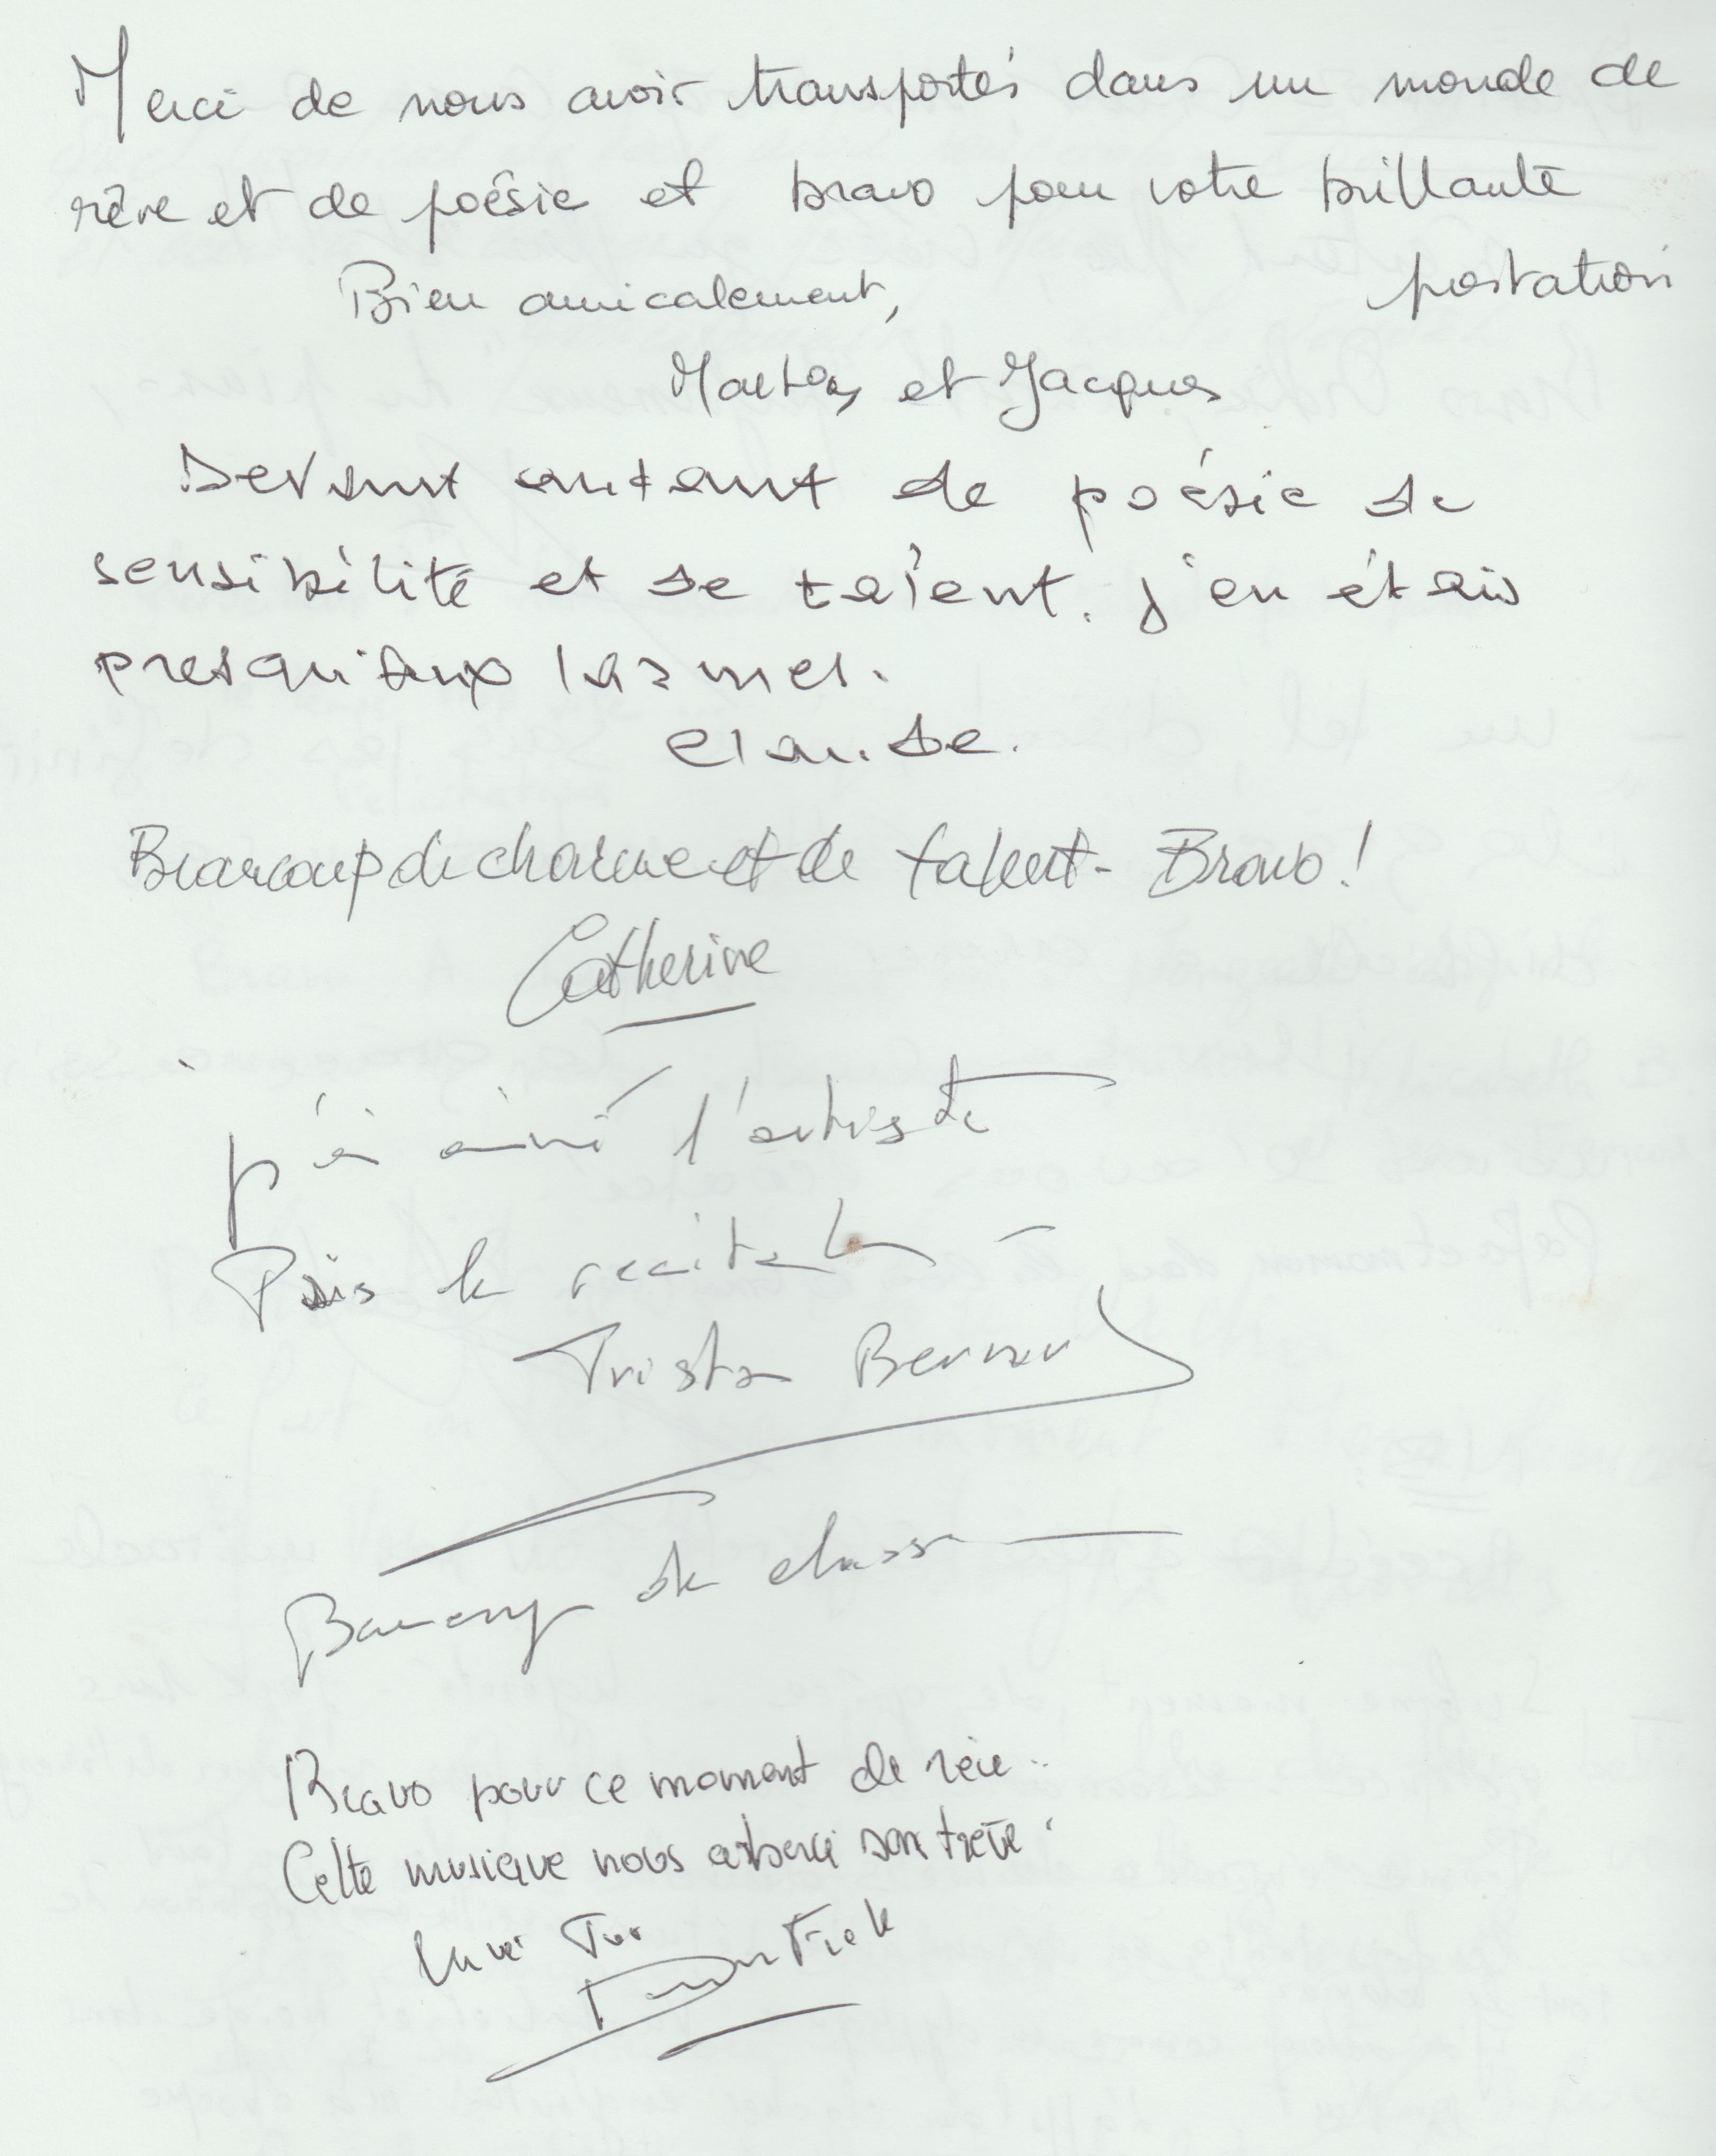 Merci de nous avoir transportés dans un monde de
rêve et de poésie et bravo pour votre brillante
Bien amicalement, prestation
et Jacques
Devant autant de poésie de
sensibilité et de talent. j'en étais
presqu'aux larmes.
Claude.
Beaucoup de charme et de talent - Bravo !
Catherine
j'ai aimé l'artiste
Puis le recital
Tristan Bernard
Beaucoup de classe
Bravo pour ce moment de rêve..
Cette musique nous a